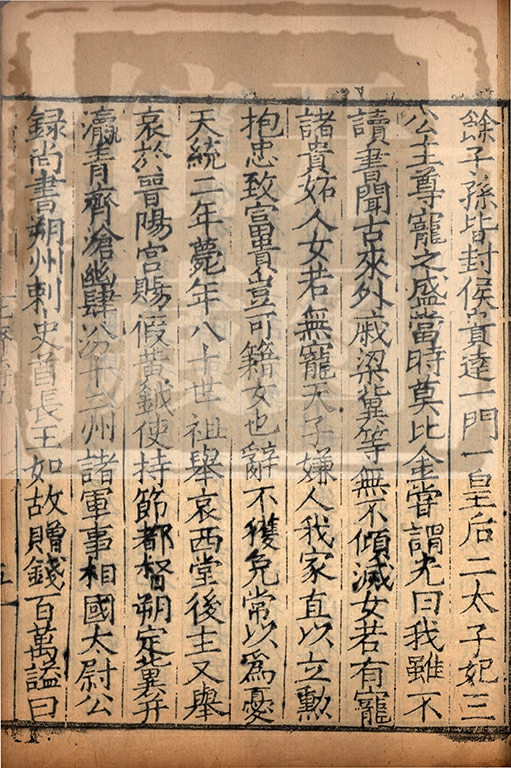 餘子孫皆封侯貴達一門一皇后二太子妃三
公主尊寵之盛當時莫比金嘗謂光曰我雖不
讀書聞古來外戚梁冀等無不傾滅女若有寵
諸貴妬人女若無寵天子嫌人我家直以立勲
抱忠致富貴豈可籍女也辭不獲免常以爲憂
天統二年薨年八十世祖舉哀西堂後主又舉
哀於晉陽宫賜假黄鉞使持節都督朔定冀并
瀛青齊滄幽肆汾十二州諸軍事相國太尉公
録尚書朔州刺史酋長王如故贈錢百萬謚曰